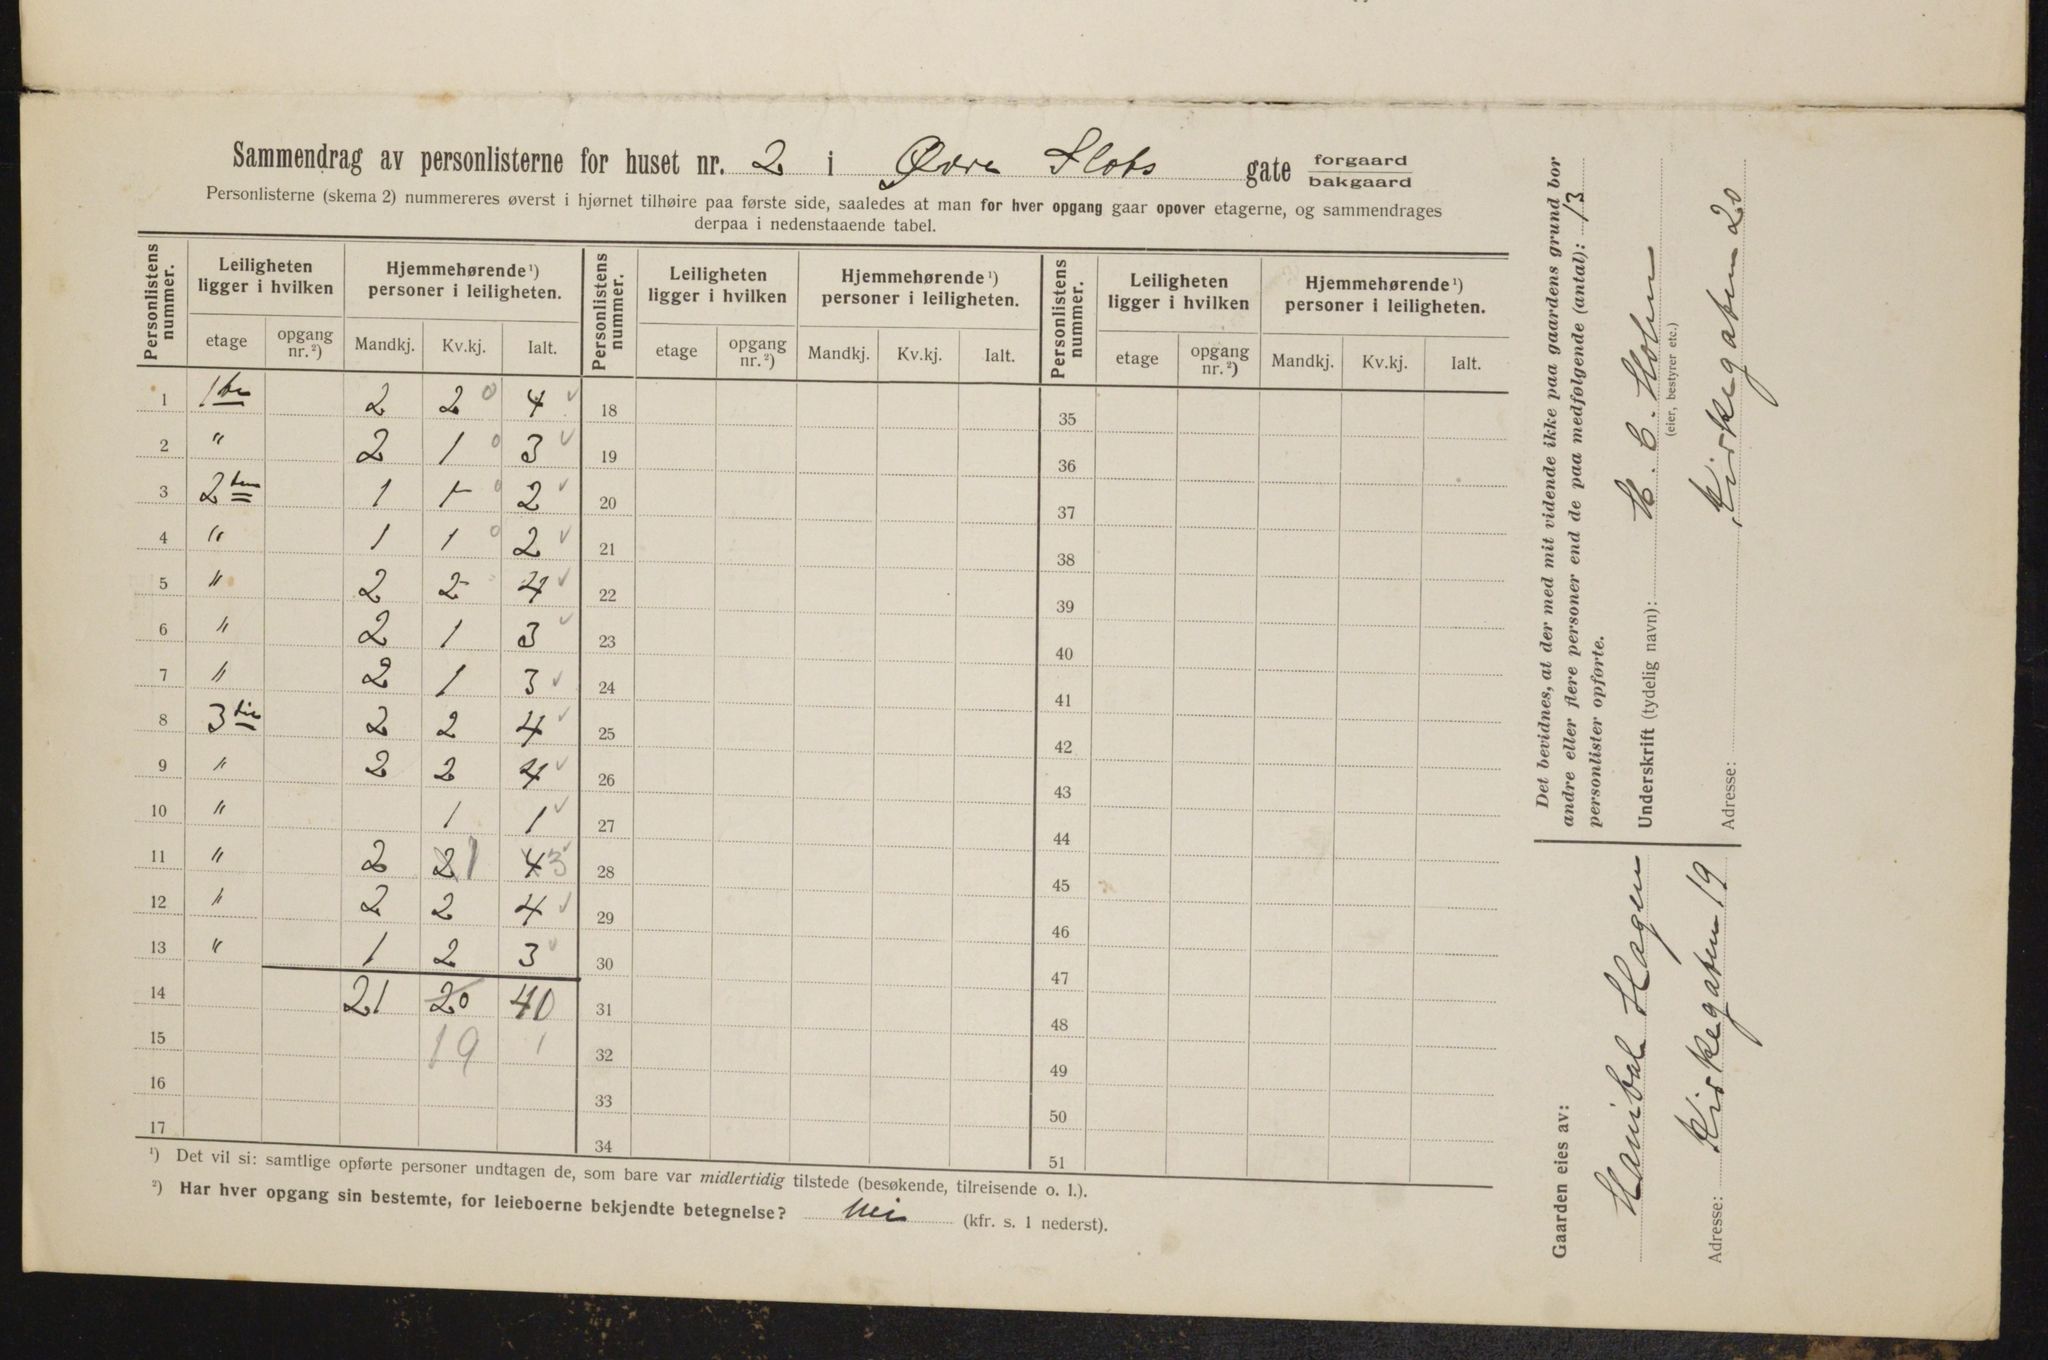 Sammendrag av personlisterne for huset nr. 2 i Øvre Slots gate forgaard / bakgaard
Personlisterne (skema 2) nummereres øverst i hjørnet tilhøire paa første side, saaledes at man for hver opgang gaar opover etagerne, og sammendrages
derpaa i nedenstaaende tabel.
Personlistens nummer. Leiligheten ligger i hvilken Hjemmehørende ¹) personer i leiligheten. Personlistens nummer. Leiligheten ligger i hvilken Hjemmehørende ¹) personer i leiligheten. Personlistens nummer. Leiligheten ligger i hvilken Hjemmehørende ¹) personer i leiligheten.
etage opgang nr. ²) Mandkj. Kv.kj. Ialt. etage opgang nr. ²) Mandkj. Kv.kj. Ialt. etage opgang nr. ²) Mandkj. Kv.kj. Ialt.
1 1ste 2 2 0 4 ✓ 18 35
2 " 2 1 0 3 ✓ 19 36
3 2den 1 1 0 2 ✓ 20 37
4 " 1 1 0 2 ✓ 21 38
5 " 2 2 4 ✓ 22 39
6 " 2 1 3 ✓ 23 40
7 " 2 1 3 ✓ 24 41
8 3die 2 2 4 ✓ 25 42
9 " 2 2 4 ✓ 26 43
10 " 1 1 ✓ 27 44
11 " 2 2 1 4 3 ✓ 28 45
12 " 2 2 4 ✓ 29 46
13 " 1 2 3 ✓ 30 47
14 21 20 40 31 48
15 19 32 49
16 33 50
17 34 51
¹) Det vil si: samtlige opførte personer undtagen de, som bare var midlertidig tilstede (besøkende, tilreisende o. l.).
²) Har hver opgang sin bestemte, for leieboerne bekjendte betegnelse? Nei (kfr. s. 1 nederst).
Det bevidnes, at der med mit vidende ikke paa gaardens grund bor
andre eller flere personer end de paa medfølgende (antal): 13
personlister opførte.
Underskrift (tydelig navn): H. C. Holm
(eier, bestyrer etc.)
Adresse: Kirkegaten 20
Gaarden eies av:
Hanibal Hagen
Adresse: Kirkegaten 19